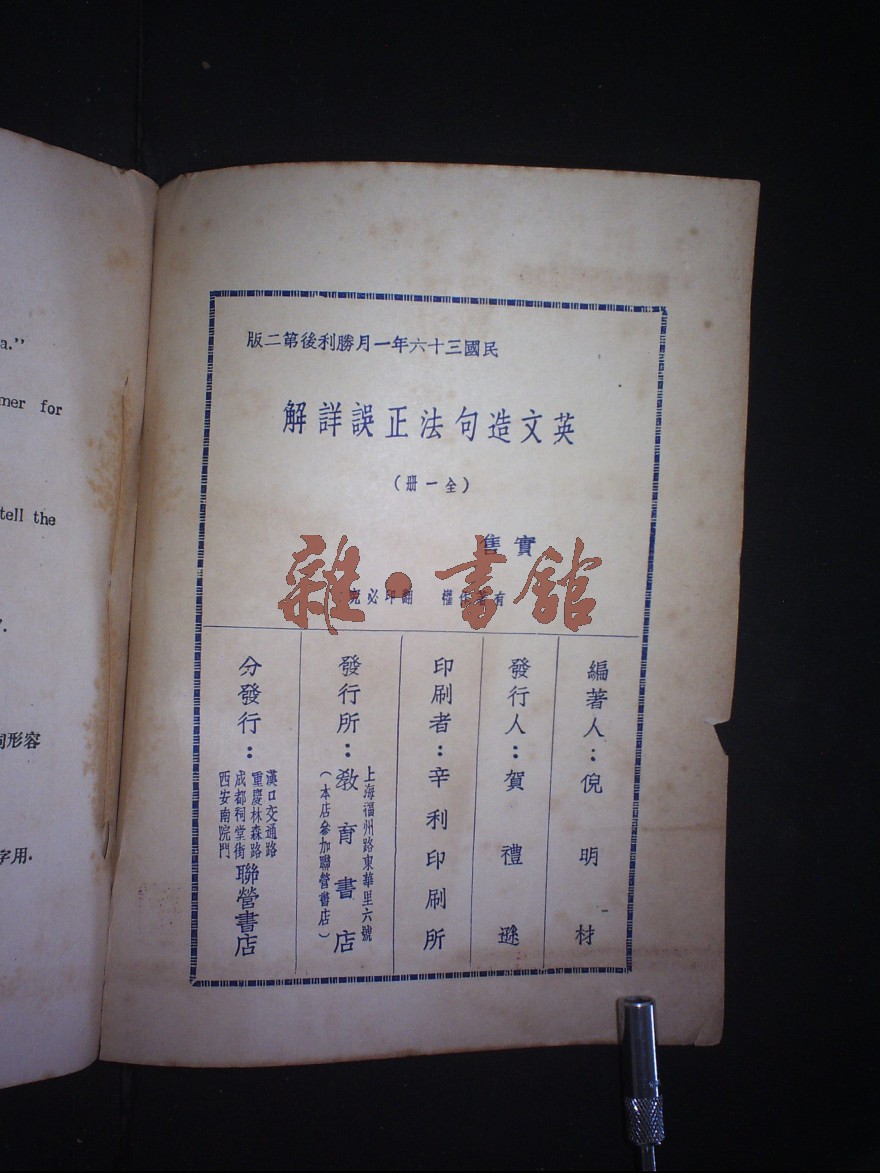 a.”
mer for
tell the
形容
字用.
民國三十六年一月勝利後第二版
英文造句法正誤詳解
(全一册)
實售
雜·書館
有著作權 翻印必究
編著人:倪明材
發行人:賀禮遜
印刷者:辛利印刷所
發行所:教育書店
上海福州路東華里六號
(本店參加聯營書店)
分發行:
漢口交通路
重慶林森路
成都祠堂街
西安南院門
聯營書店